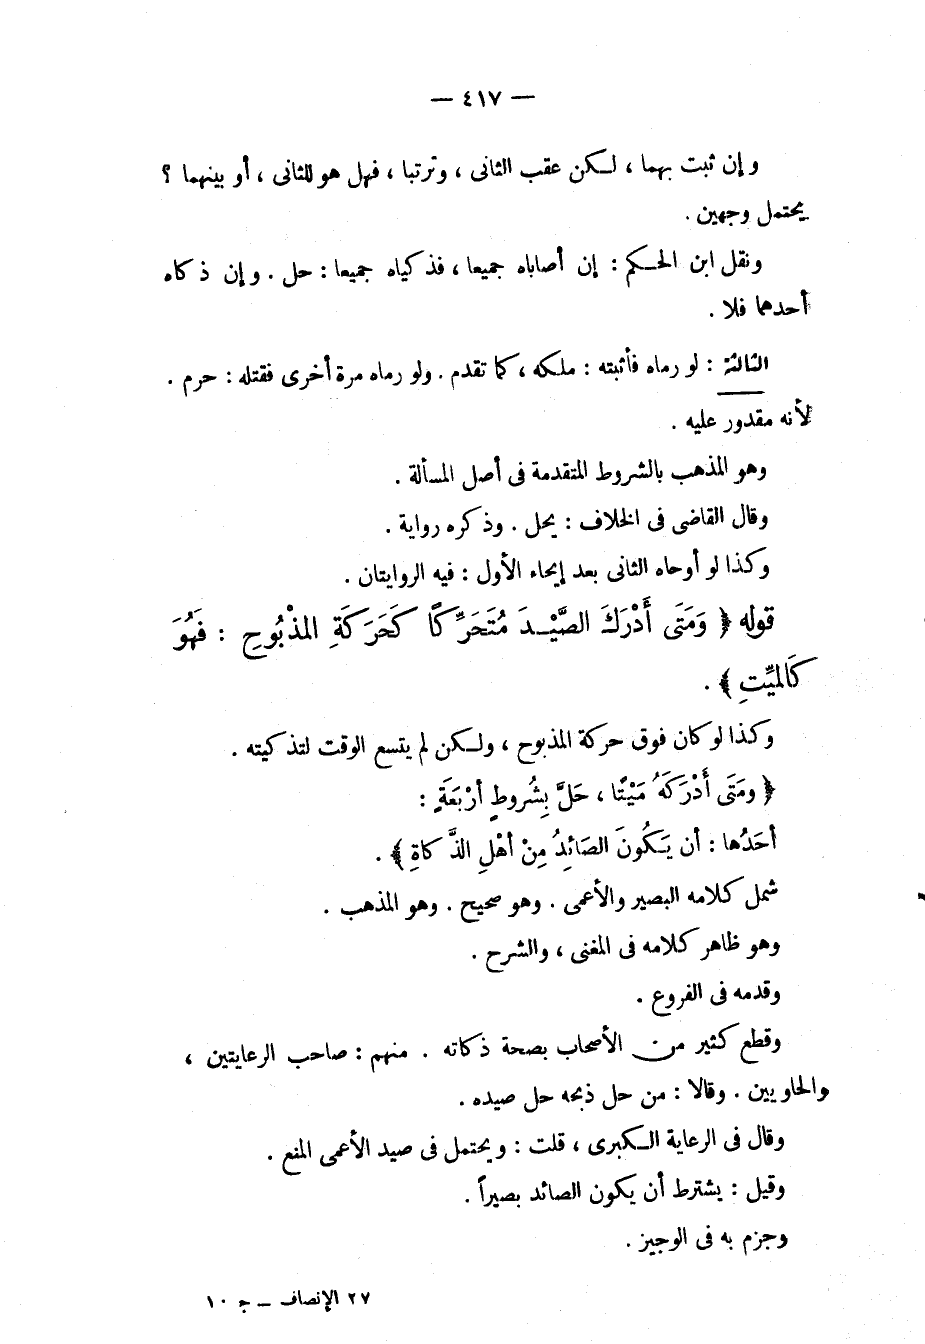 — ٤١٧ —
وإن ثبت بهما ، لكن عقب الثانى ، وترتبا ، فهل هو للثانى ، أو بينهما ؟
يحتمل وجهين .
ونقل ابن الحكم : إن أصاباه جميعا ، فذكياه جميعا : حل . وإن ذكاه
أحدهما فلا .
الثالثة : لو رماه فأثبته : ملكه ، كما تقدم . ولو رماه مرة أخرى فقتله : حرم .
لأنه مقدور عليه .
وهو المذهب بالشروط المتقدمة فى أصل المسألة .
وقال القاضى فى الخلاف : يحل . وذكره رواية .
وكذا لو أوحاه الثانى بعد إيحاء الأول : فيه الروايتان .
قوله ﴿ وَمَتَى أَدْرَكَ الصَّيْدَ مُتَحَرِّكًا كَحَرَكَةِ المذْبُوحِ : فَهُوَ
كَالميِّتِ ﴾ .
وكذا لو كان فوق حركة المذبوح ، ولكن لم يتسع الوقت لتذكيته .
﴿ ومَتَى أَدْرَكَهُ مَيْتًا ، حَلَّ بِشُروطٍ أرْبَعَةٍ :
أحَدُها : أن يَكُونَ الصَائِدُ مِنْ أهْلِ الذَّكاةِ ﴾ .
شمل كلامه البصير والأعمى . وهو صحيح . وهو المذهب .
وهو ظاهر كلامه فى المغنى ، والشرح .
وقدمه فى الفروع .
وقطع كثير من الأصحاب بصحة ذكاته . منهم : صاحب الرعايتين ،
والحاويين . وقالا : من حل ذبحه حل صيده .
وقال فى الرعاية الكبرى ، قلت : ويحتمل فى صيد الأعمى المنع .
وقيل : يشترط أن يكون الصائد بصيراً .
وجزم به فى الوجيز .
٢٧ الإنصاف – ج ١٠